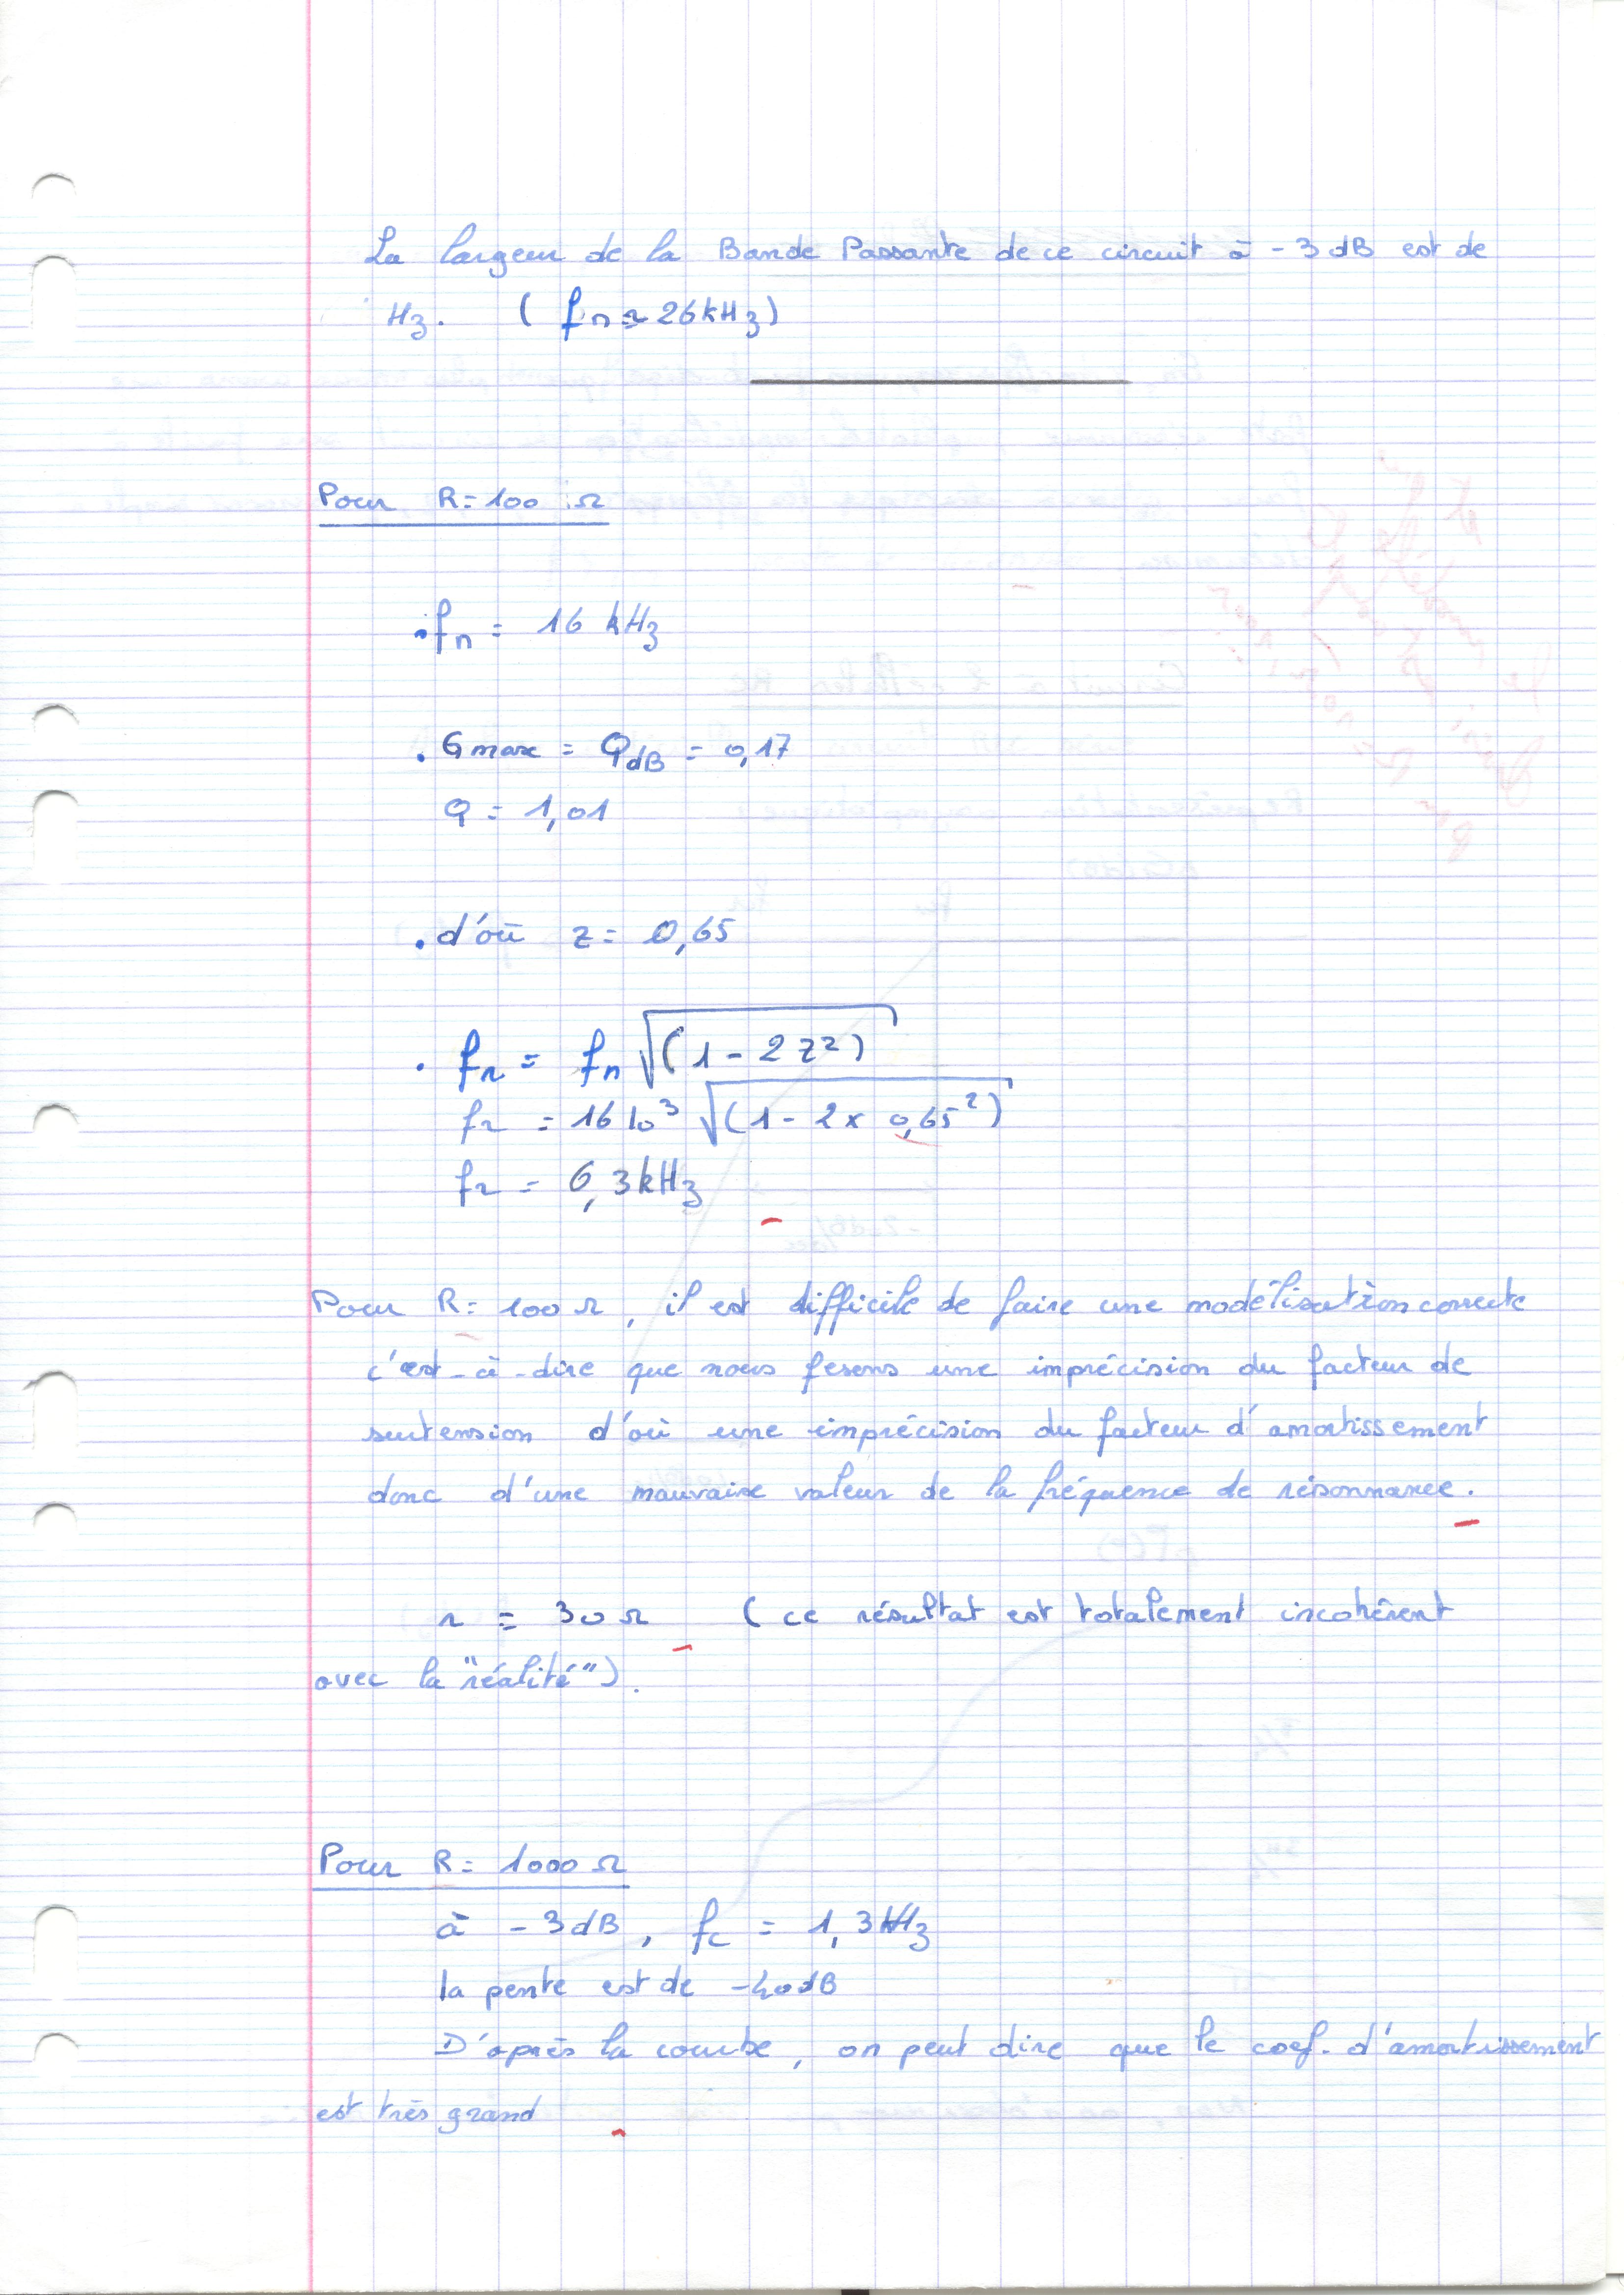 La largeur de la Bande Passante de ce circuit à -3 dB est de
Hz. ( fn ≈ 26 kHz)
Pour R = 100 Ω
• fn = 16 kHz
• Gmax = QdB = 0,17
Q = 1,01
• d'où z = 0,65
• fr = fn √(1 - 2 z²)
fr = 16 10³ √(1 - 2 x 0,65²)
fr = 6,3 kHz
Pour R = 100 Ω, il est difficile de faire une modélisation correcte
c'est-à-dire que nous fesons une imprécision du facteur de
surtension d'où une imprécision du facteur d'amortissement
donc d'une mauvaise valeur de la fréquence de résonnance.
r = 30 Ω ( ce résultat est totalement incohérent
avec la "réalité").
Pour R = 1000 Ω
à - 3 dB, fc = 1,3 kHz
la pente est de -40 dB
D'après la courbe, on peut dire que le coef. d'amortissement
est très grand